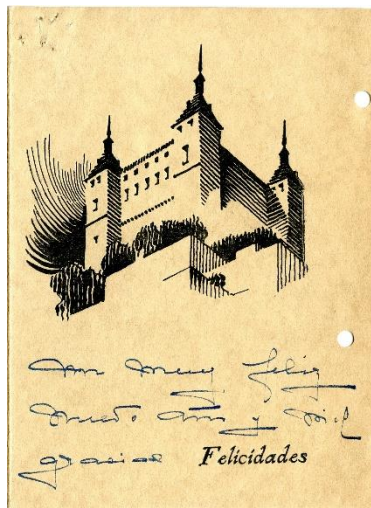 muy feliz
nuevo año y mil
gracias Felicidades